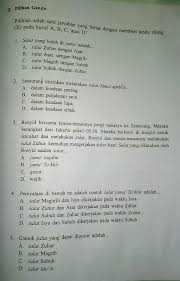 2. Pilihan Ganda
Pilihlah salah satu jawaban yang benar dengan memberi tanda silang
(X) pada huruf A, B, C, atau D!
1. Salat yang boleh di jama' adalah...
A. salat Zuhur dengan Asar
B. salat Asar dengan Magrib
C. salat Magrib dengan Subuh
D. salat Subuh dengan Zuhur
2. Seseorang diizinkan melakukan salat Jama' apabila...
A. dalam keadaan pening
B. dalam perjalanan jauh
C. dalam keadaan lupa
D. dalam keadaan sibuk
3. Rosyid bersama teman-temannya pergi tamasya ke Semarang. Mereka
berangkat dari Jakarta pukul 05.30. Mereka berhenti di masjid untuk
istirahat dan melakukan salat. Rosyid dan teman-temannya melakukan
salat Zuhur, kemudian mengerjakan salat Asar. Salat yang dilakukan oleh
Rosyid adalah salat...
A. jama' taqdim
B. jama' Ta'khir
C. qasar
D. wajib
4. Pernyataan di bawah ini adalah contoh salat jama' Ta'khir adalah...
A. salat Magrib dan Isya dikerjakan pada waktu Isya
B. salat Zuhur dan Asar dikerjakan pada waktu Zuhur
C. salat Subuh dan Zuhur dikerjakan pada waktu Zuhur
D. salat Isya dan Subuh dikerjakan pada waktu Subuh
5. Contoh salat yang dapat diqasar adalah...
A. salat Zuhur
B. salat Magrib
C. salat Subuh
D. salat Id